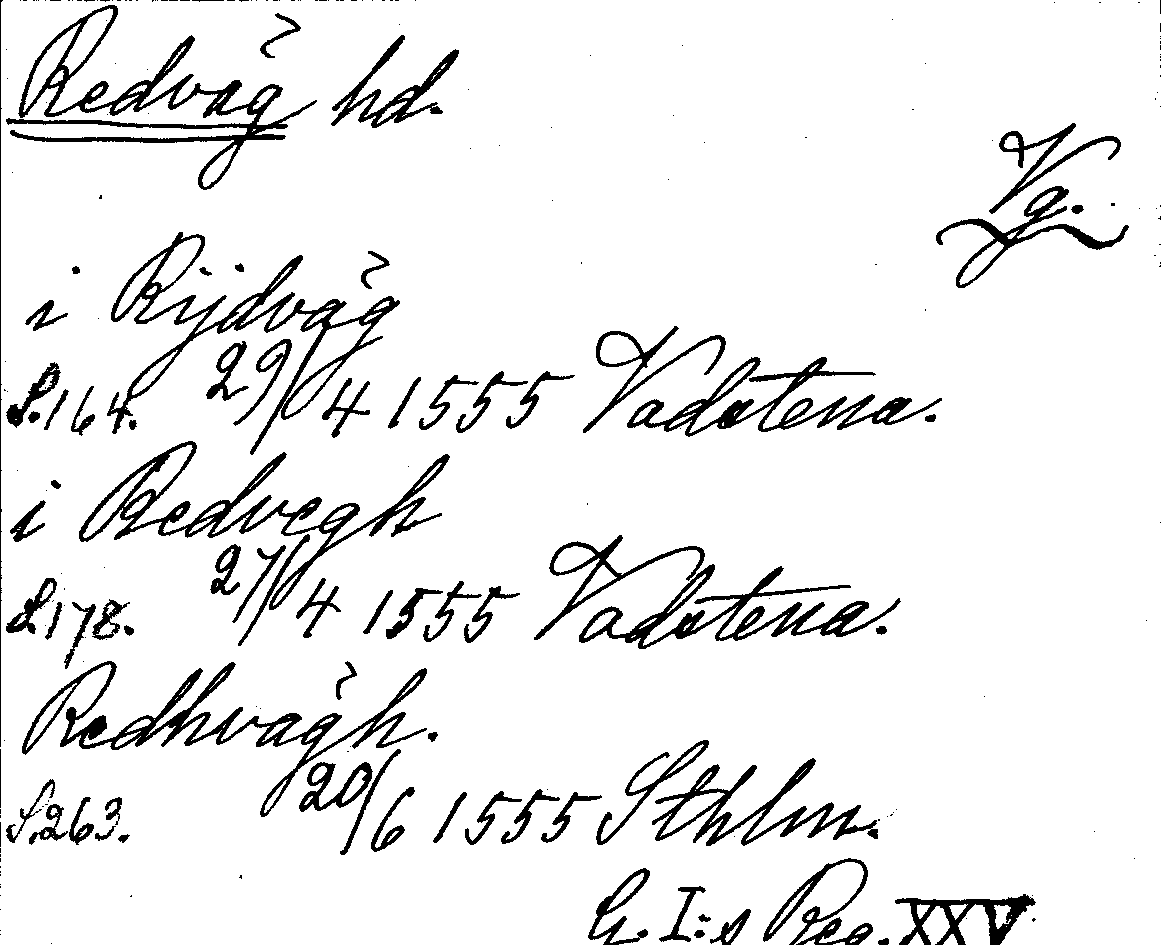 Redväg hd.
Vg.
i Rijdväg
S.164. 29/4 1555 Vadstena.
i Redvegh
S.178. 27/4 1555 Vadstena.
Redhvägh.
S.263. 20/6 1555 Sthlm.
G. I:s Reg. XXV